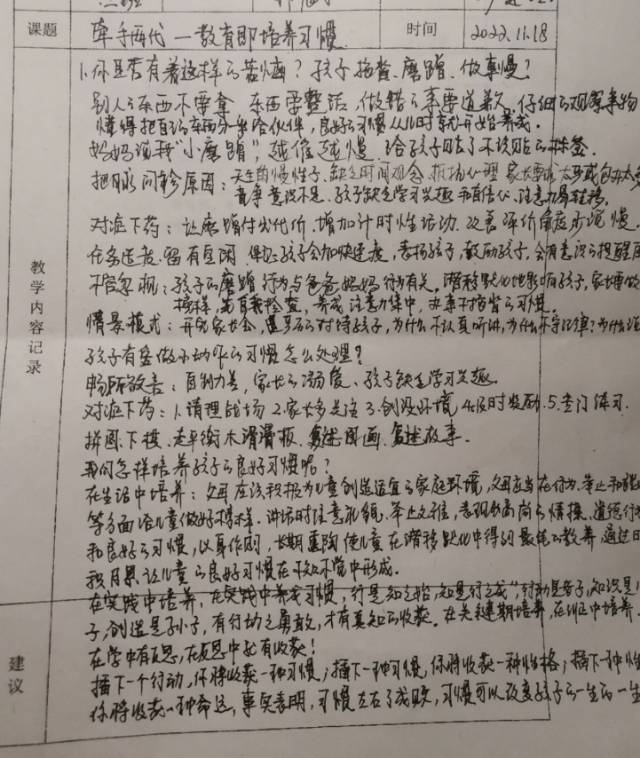 课题 牵手两代—教育即培养习惯 时间 2022.11.18
教学内容记录
1.你是否有着这样的苦恼?孩子拖沓、磨蹭、做事慢?
别人的东西不要拿 东西要整洁,做错了事要道歉,仔细的观察事物
懂得把自己的东西分一半给伙伴,良好的习惯从儿时就开始养成。
妈妈说我"小磨蹭",越催越慢,给孩子贴了不该贴的标签。
把脉问诊原因:天生的慢性子、缺乏时间观念、抵抗心理 家长要求太多或包办太多
竞争意识不足、孩子缺乏学习兴趣和自信心、注意力易转移。
对症下药:让磨蹭付出代价,增加计时性活动,改善评价角度,少说慢,
任务适度,留有空闲,保证孩子会加快速度,表扬孩子,鼓励孩子,会有意识的提醒自
不容忽视:孩子的磨蹭行为与爸爸妈妈行为有关,潜移默化地影响孩子,家长要做
榜样,先自我检查,养成注意力集中,办事不拖沓的习惯。
情景模式:开完家长会,这样的对待孩子,为什么不认真听讲,为什么不守纪律?为什么
孩子有爱做小动作的习惯怎么处理?
畅所欲言:自制力差,家长的溺爱、孩子缺乏学习兴趣。
对症下药:1.清理战场 2.家长多关注 3.创设环境 4.及时鼓励.5.专门练习.
拼图、下棋、走平衡木、滑滑板、复述图画、复述故事。
我们怎样培养孩子的良好习惯呢?
在生活中培养:父母应该积极为儿童创造适宜的家庭环境,父母应当在行为、举止和
等方面给儿童做好榜样.讲话时注意礼貌、举止文雅,表现出高尚的情操、道德行为
和良好的习惯,以身作则,长期熏陶使儿童在潜移默化中得到最好的教养,通过日
积月累让儿童的良好习惯在不知不觉中形成.
在实践中培养,在实践中养成习惯,"行是知之始,知是行之成",行动是老子,知识是儿
子,创造是孙子,有行动之勇敢,才有真知的收获。在关键期培养,在班中培养.
建议
在学中有反思,在反思中就有收获!
播下一个行动,你将收获一种习惯;播下一种习惯,你将收获一种性格;播下一种性
你将收获一种命运,事实表明,习惯左右了成败,习惯可以改变孩子的一生的一生